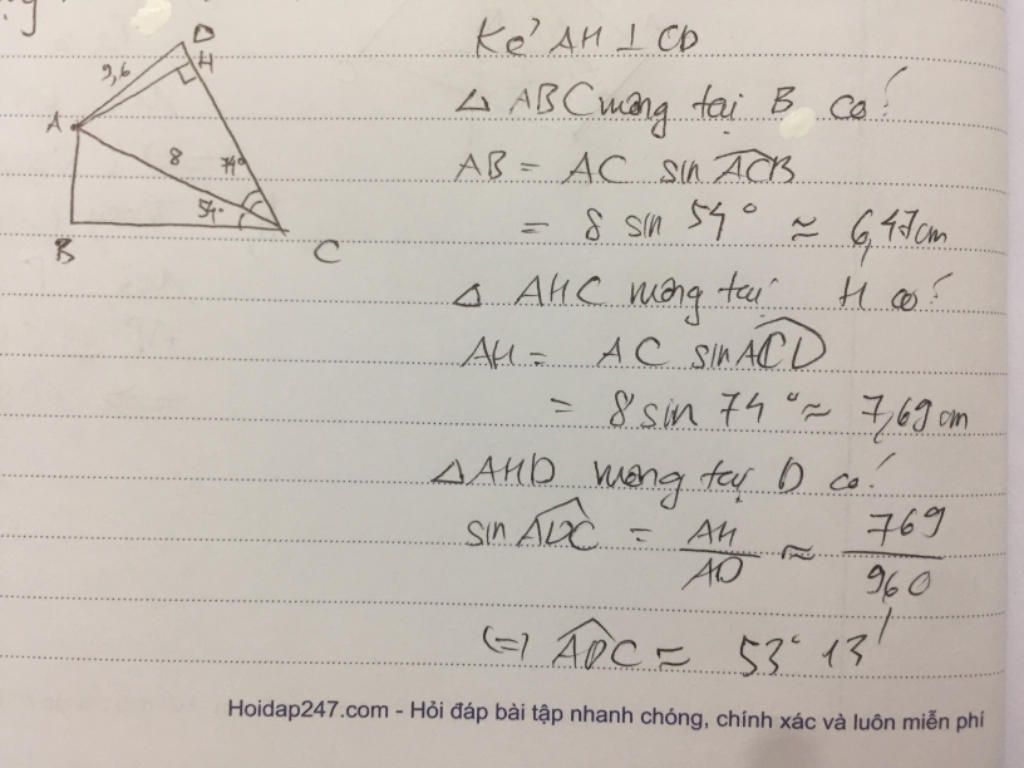 D
H
9,6
A
8
74°
54°
B
C
Kẻ AH ⊥ CD
△ ABC vuông tại B có:
AB = AC sin ACB
= 8 sin 54° ≈ 6,47cm
△ AHC vuông tại H có:
AH = AC sin ACD
= 8 sin 74° ≈ 7,69cm
△AHD vuông tại D có:
sin ADC = AH/AD ≈ 769/960
(=) ADC = 53° 13'
Hoidap247.com - Hỏi đáp bài tập nhanh chóng, chính xác và luôn miễn phí